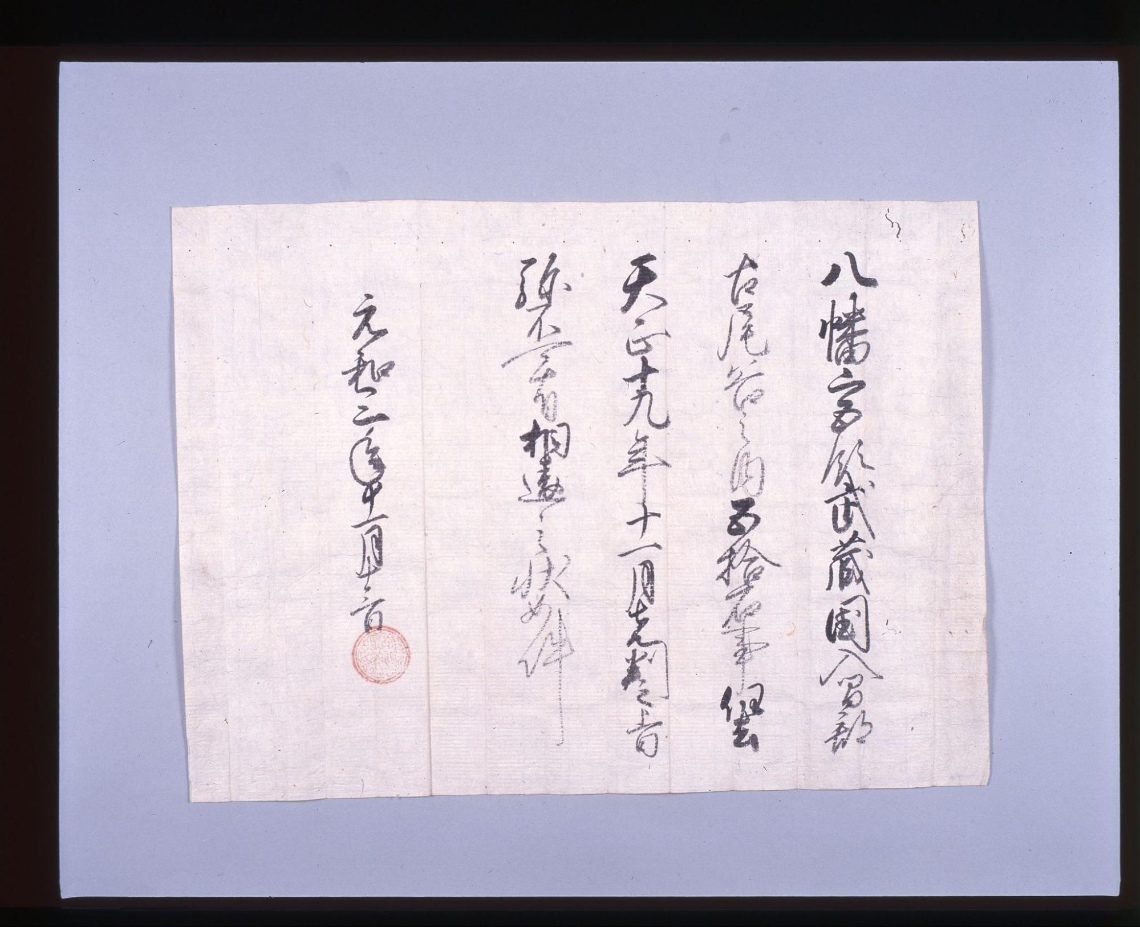 八幡宮領武蔵国入間郡
古尾谷之内五拾石事任去
天正十九年十一月先判之旨
弥不可有相違之状如件
元和二年十一月日